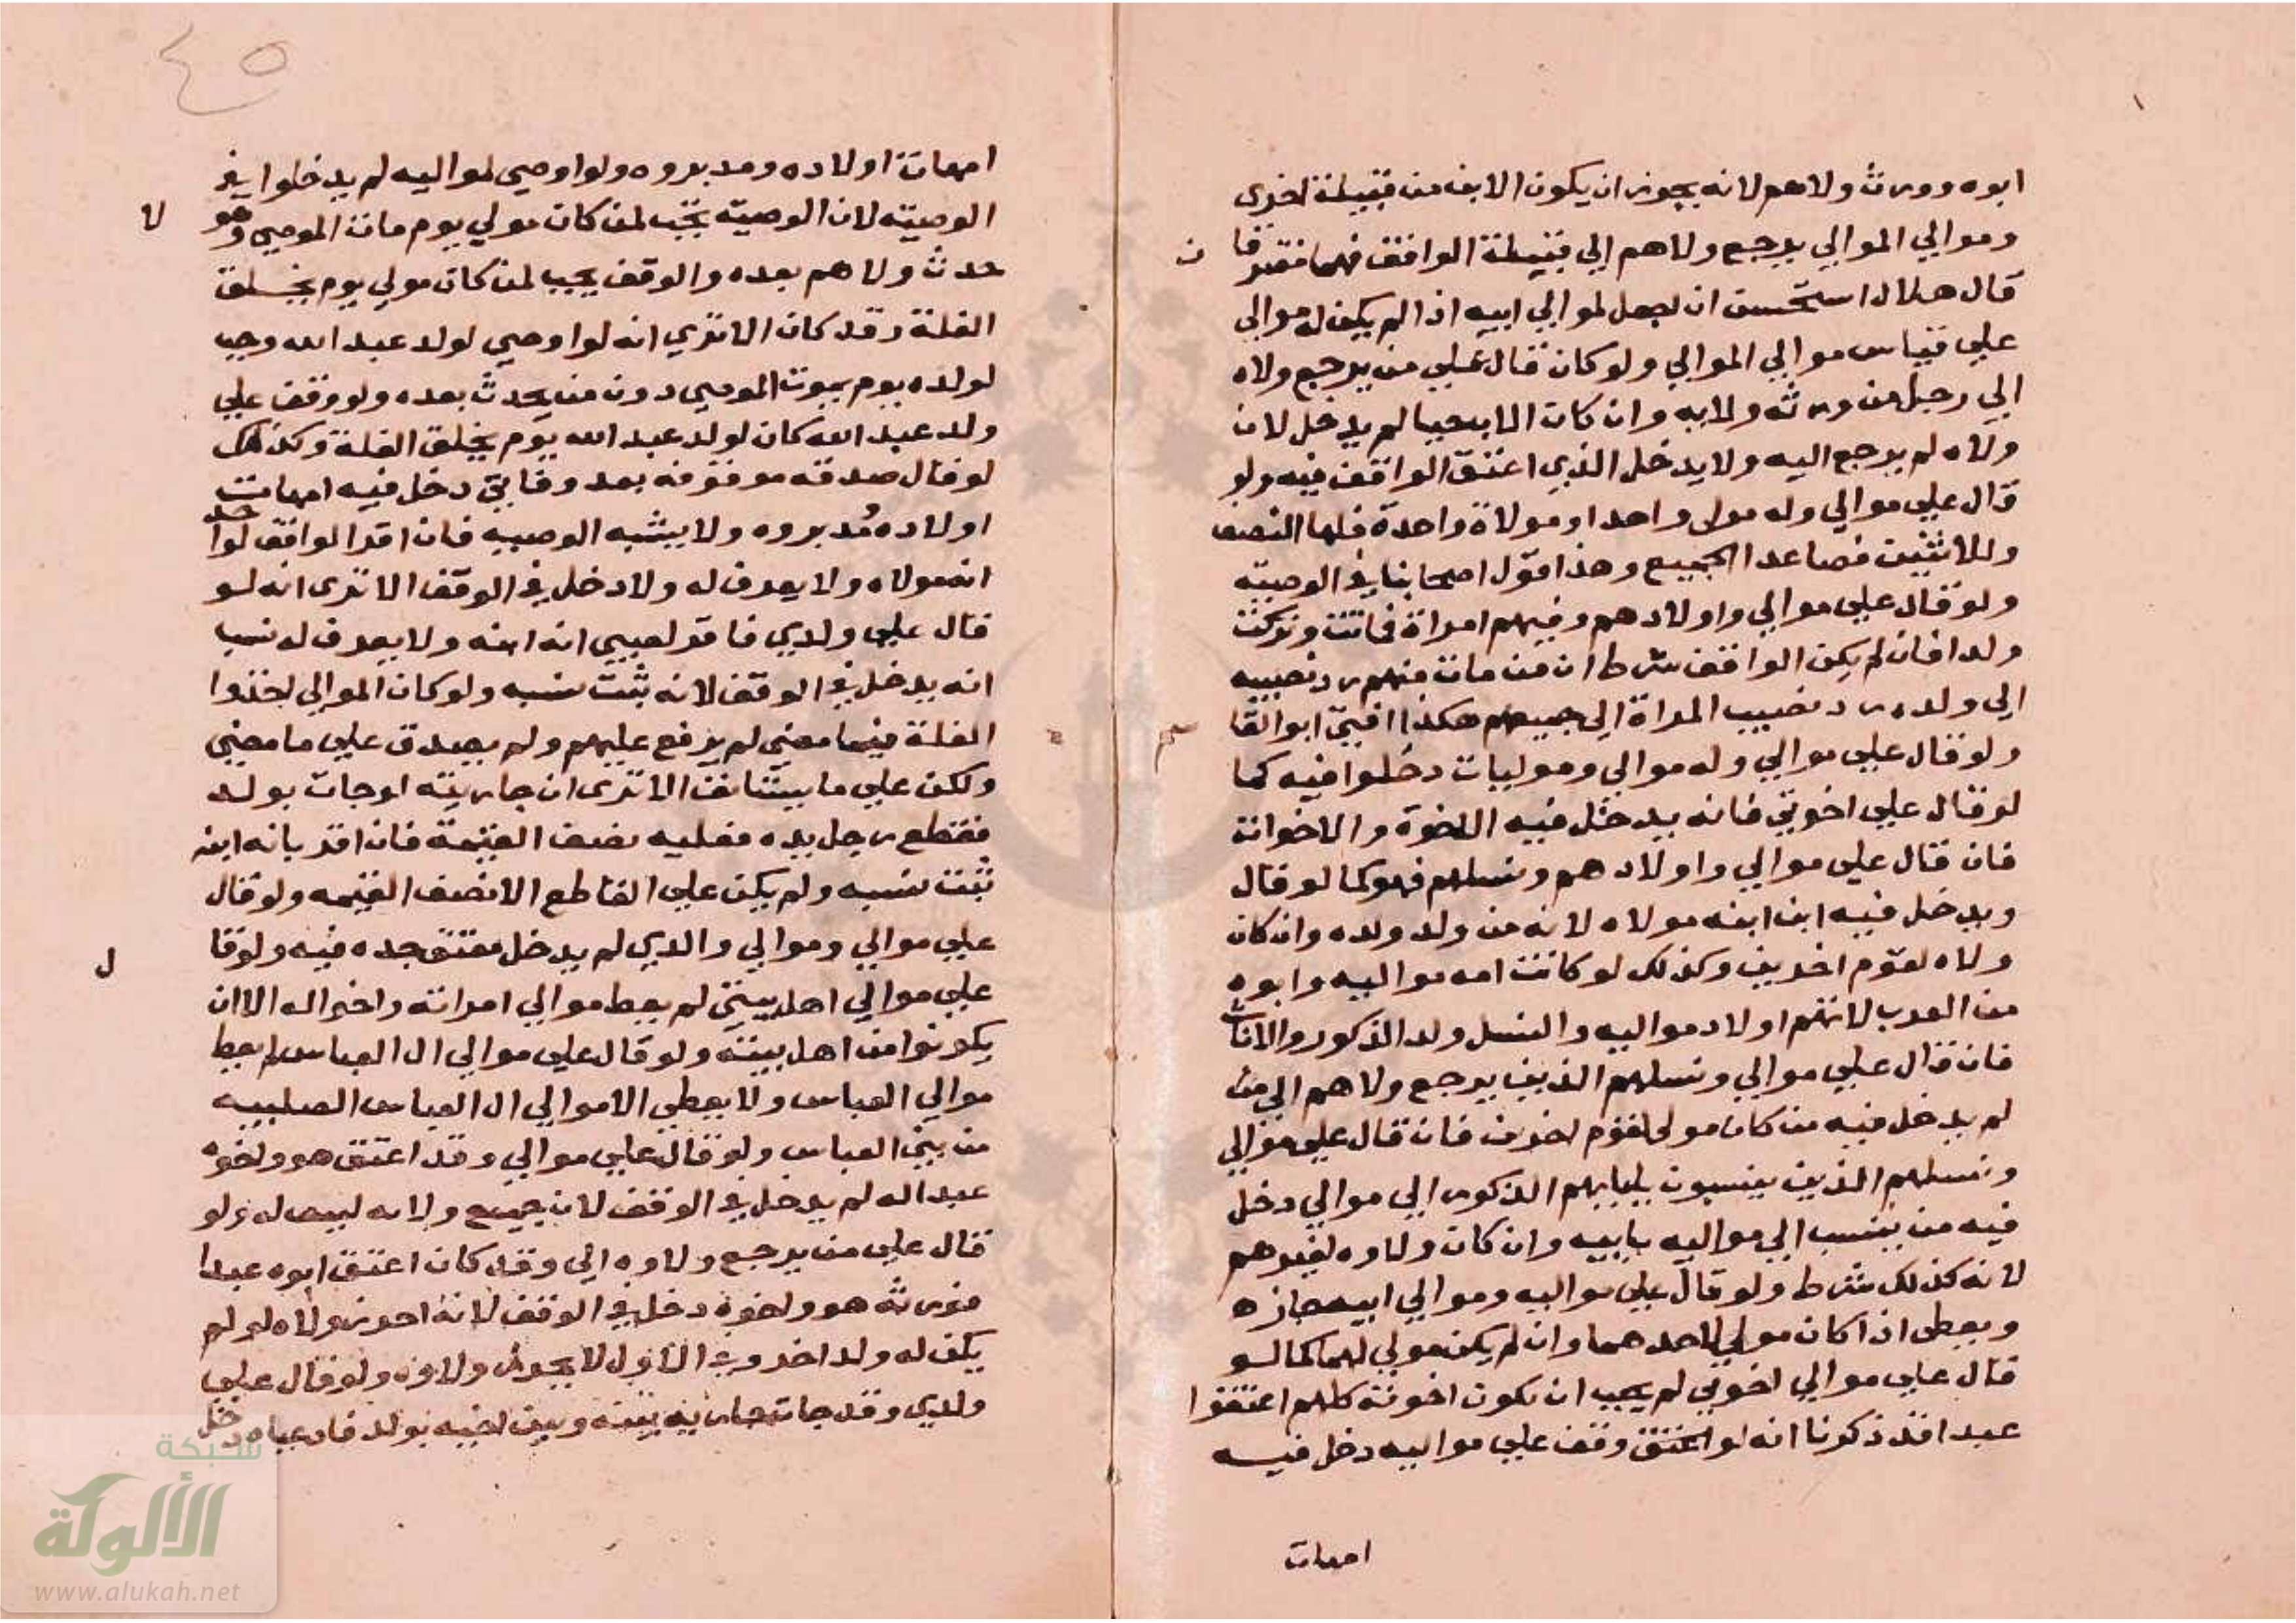 ابوه وورث ولاهم لانه يجوز ان يكون الابن من قبيلة اخرى
وموالي الموالي يرجع ولاهم الي قبيلة الواقف فهما مفترقان
قال هلال استحسن ان لجعل لموالي ابيه اذا لم يكن له موالي
علي قياس موالي الموالي ولو كان قال علي من يرجع ولاه
الي رجل من ورثه ولابه وان كان الاب حيا لم يدخل لان
ولاه لم يرجع اليه ولا يدخل الذي اعتق الواقف فيه ولو
قال علي موالي وله مولى واحد او مولاة واحدة فلها النصف
وللاثنين فصاعدا الجميع وهذا قول اصحابنا في الوصيته
ولو قال علي موالي واولادهم وفيهم امراة فماتت وتركت
ولدا فان لم يكن الواقف شرط ان من مات منهم رد نصيبه
الي ولده رد نصيب المراة الي جميعهم هكذا افتي ابو القا سم
ولو قال علي موالي وله موالي وموليات دخلوا فيه كما
لو قال علي اخوتي فانه يدخل فيه الاخوة والاخوات
فان قال علي موالي واولادهم ونسلهم فهو كما لو قال
ويدخل فيه ابن ابنه مولاه لانه من ولد ولده وان كان
ولاه لقوم اخرين وكذلك لو كانت امه مواليه وابوه
من العرب لانهم اولاد مواليه والنسل ولد الذكور والاناث
فان قال علي موالي ونسلهم الذين يرجع ولاهم الي من
لم يدخل فيه من كان مولى لقوم اخرن فان قال علي موالي
ونسلهم الذين ينسبون بابايهم الذكور الي موالي دخل
فيه من ينسب الي مواليه بابيه وان كان ولاوه لغيرهم
لانه كذلك شرط ولو قال علي مواليه وموالي ابيه جاز ه
ويعطى اذا كان مولي لاحدهما وان لم يكن مولي لهما كما لو
قال علي موالي اخوتي لم يجب ان يكون اخوته كلهم اعتقوا
عبدا فقد ذكرنا انه لو اعتق وقف علي مواليه دخل فيه
امهات
٤٥
امهات اولاده ومدبروه ولو اوصي لمواليه لم يدخلوا في
الوصيته لان الوصيته تجب لمن كان مولي يوم مات الموصي وهو لا
حدث ولاهم بعده والوقف يجب لمن كان مولي يوم يخلق
الغلة وقد كان الا تري انه لو اوصي لولد عبد الله وجب
لولده يوم يموت الموصي دون من يحدث بعده ولو وقف علي
ولد عبد الله كان لولد عبد الله يوم يخلق الغلة وكذلك
لو قال صدقه موقوفه بعد وفاتي دخل فيه امهات
اولاده مدبروه ولا يشبه الوصيه فان اقر الواقف لواحد
انه مولاه ولا يعرف له ولا دخل في الوقف الا ترى انه لو
قال علي ولدي فاقر لصبي انه ابنه ولا يعرف له نسبا
انه يدخل في الوقف لانه ثبت نسبه ولو كان الموالي اخذوا
الغلة فيما مضي لم يرفع عليهم ولم يصدق علي ما مضي
ولكن علي ما يستانف الا ترى ان جاريته لو جات بولد
فقطع رجل يده فعليه نصف القيمة فان اقر بانه ابنه
ثبت نسبه ولم يكن علي القاطع الا نصف القيمه ولو قال
علي موالي وموالي والدي لم يدخل معتق جده فيه ولو قا ل
علي موالي اهل بيتي لم يعط موالي امراته واخواله الا ان
يكونوا من اهل بيته ولو قال علي موالي ال العباس لم يعط
موالي العباس ولا يعطي الا موالي ال العباس الصلبيه
من بني العباس ولو قال علي موالي وقد اعتق هو واخوه
عبدا له لم يدخل في الوقف لان جميع ولاه ليس له ولو
قال علي من يرجع ولاوه الي وقد كان اعتق ابوه عبدا
فورثه هو واخوه دخل في الوقف لانه احرز ولاه لو لم
يكن له ولد اخر وفي الاول لا يجوز ولاوه ولو قال علي
ولدي وقد جات جاريه بينه وبين اخيه بولد فادعياه دخل
شبكة
الألولة
www.alukah.net